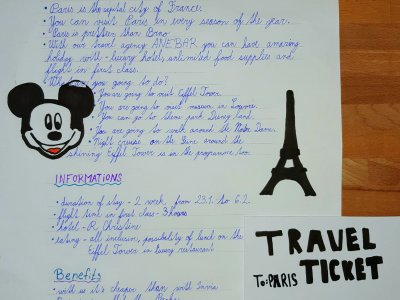 • Paris is the capital city of France.
• You can visit Paris in every season of the year.
• Paris is prettier than Brno.
• With our travel agency ANEBAR you can have amazing
holiday with - luxury hotel, unlimited food supplies and
flight in first class.
What are you going to do?
• You are going to visit Eiffel Tower
• You are going to visit museum in Louvre.
• You can go to theme park Disney land.
• You are going to walk around the Notre Dame.
• Night cruise on the Seine around the
shining Eiffel Tower is in the programme too.
INFORMATIONS
• duration of stay - 2 week, from 23.1. to 6.2.
• flight time in first class - 3 hours
• hotel - R Christine
• eating - all inclusion, possibility of lunch on the
Eiffel Tower in luxury restaurant
Benefits
• with us it's cheaper than with
TRAVEL
TICKET
To: PARIS